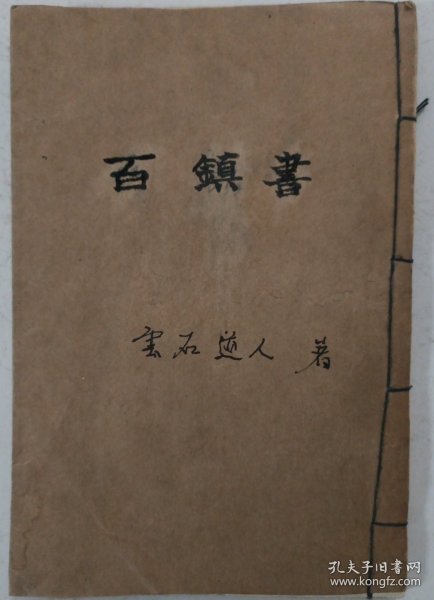 百鎮書
雲石道人 著
孔夫子旧书网
www.kongfz.com